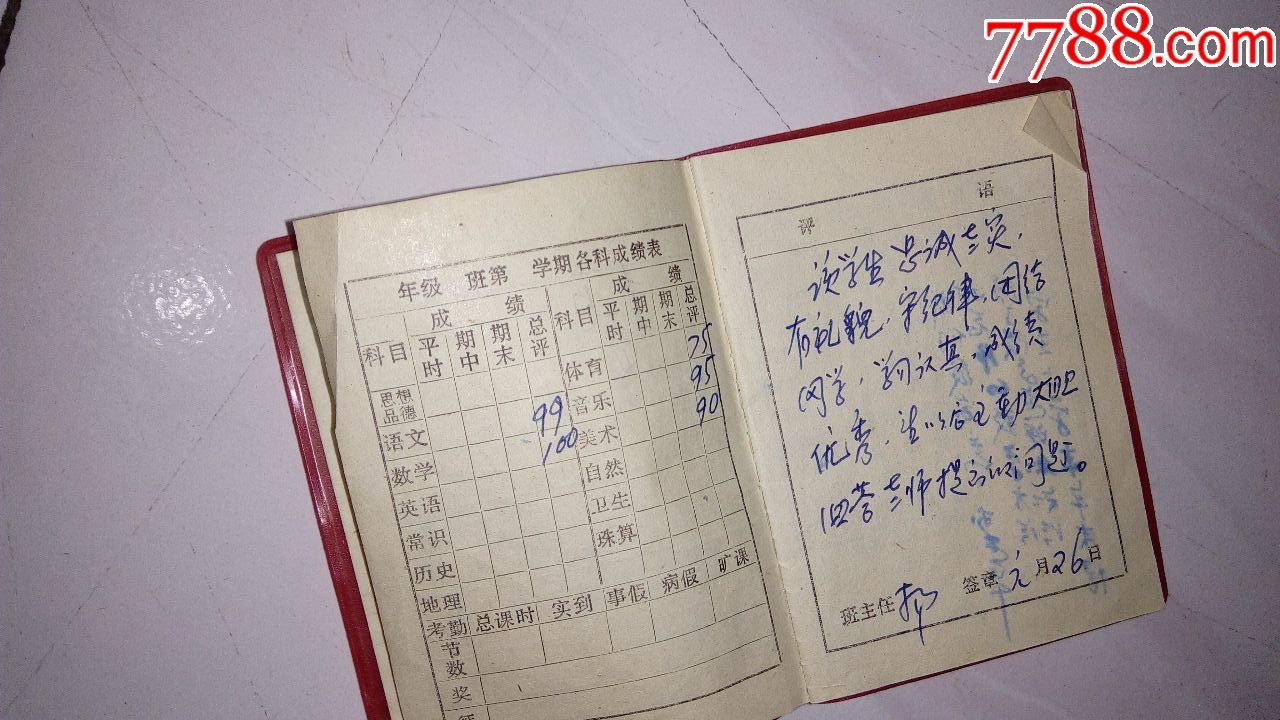 7788.com
年级 班第 学期各科成绩表
科目 成绩 平时 期中 期末 总评 科目 成绩 平时 期中 期末 总评
思想品德 体育 75
语文 99 音乐 95
数学 100 美术 90
英语 自然
常识 卫生
历史 珠算
地理
考勤 总课时 实到 事假 病假 旷课
节数
奖
评语
该学生忠诚老实,
有礼貌,守纪律,团结
同学,学习认真,成绩
优秀,望以后主动大胆
回答老师提出的问题。
班主任 签章 元月26日